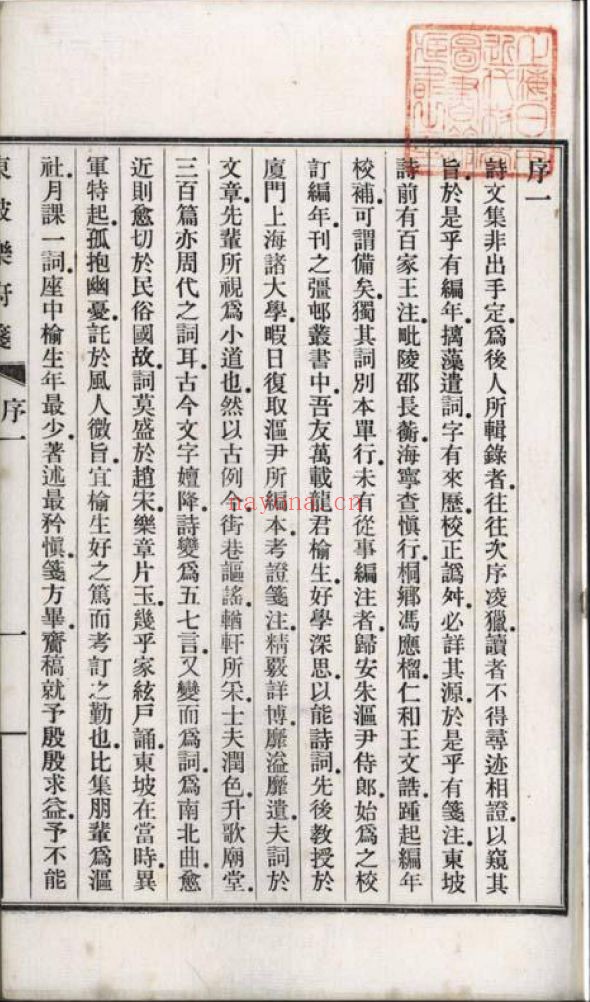 序一
詩文集非出手定爲後人所輯錄者往往次序凌獵讀者不得尋迹相證以窺其
旨於是乎有編年摛藻遣詞字有來歷校正譌舛必詳其源於是乎有箋注東坡
詩前有百家王注毗陵邵長蘅海寧查愼行桐鄉馮應榴仁和王文誥踵起編年
校補可謂備矣獨其詞別本單行未有從事編注者歸安朱漚尹侍郎始爲之校
訂編年刊之彊邨叢書中吾友萬載龍君楡生好學深思以能詩詞先後教授於
廈門上海諸大學暇日復取漚尹所編本考證箋注精覈詳博靡溢靡遺夫詞於
文章先輩所視爲小道也然以古例今街巷謳謠輶軒所采士夫潤色升歌廟堂
三百篇亦周代之詞耳古今文字嬗降詩變爲五七言又變而爲詞爲南北曲愈
近則愈切於民俗國故詞莫盛於趙宋樂章片玉幾乎家絃戶誦東坡在當時異
軍特起孤抱幽憂託於風人微旨宜楡生好之篤而考訂之勤也比集朋輩爲漚
社月課一詞座中楡生年最少著述最矜愼箋方畢齎稿就予殷殷求益予不能
東坡樂府箋
序一
一
nayona.cn